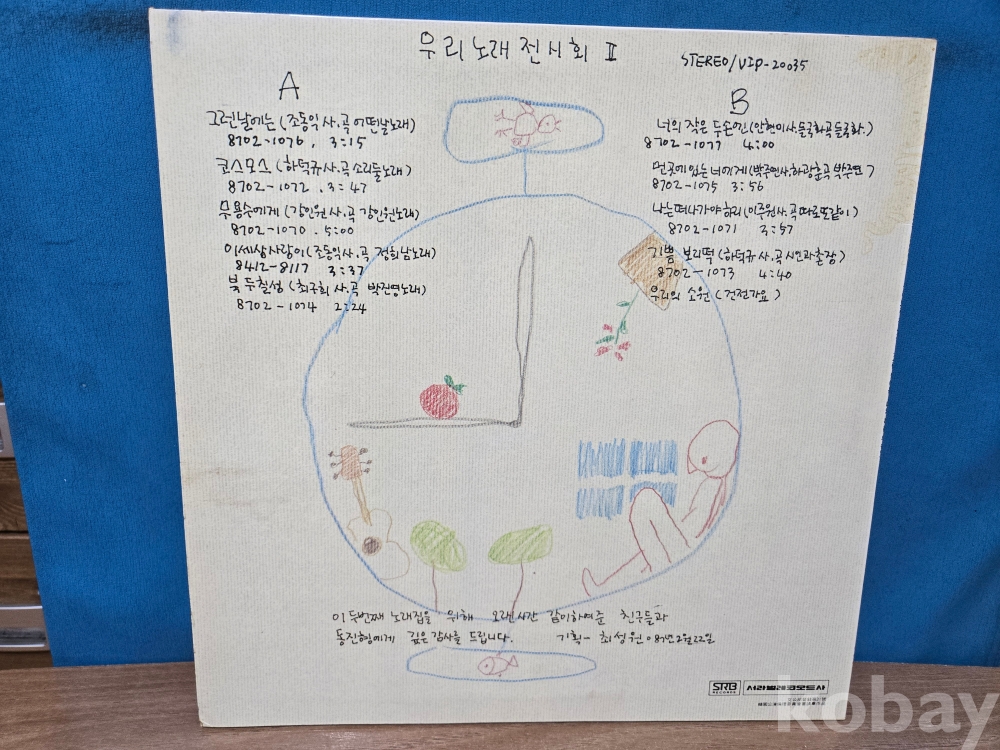 우리노래전시회 Ⅱ
STEREO/VIP-20035
A
그런날에는 (조동익 사.곡 어떤날노래)
8702-1076. 3:15
코스모스 (하덕규사.곡 소리둘노래)
8702-1072. 3:47
무용수에게 (강인원사.곡 강인원노래)
8702-1070. 5:00
이세상사랑이 (조동익사.곡 정희남노래)
8412-8117 3:37
북두칠성 (최구희 사.곡 박진영노래)
8702-1074 2:24
B
너의 작은 두손엔 (안현이사.들국화곡 들국화)
8702-1077 4:00
먼곳에 있는 너에게 (박주연사.하광훈곡 박주연)
8702-1075 3:56
나는떠나가야하리 (이주원사.곡 따로또같이)
8702-1071 3:57
기쁨 보리떡 (하덕규사.곡 시인과촌장)
8702-1073 4:40
우리의 소원 (건전가요)
이 두번째 노래집을 위해 오랜시간 같이하여준 친구들과
동진형에게 깊은 감사를 드립니다. 기획- 최성원 87년2월22일
SRB
RECORDS
서라벌레코오드사
kobay